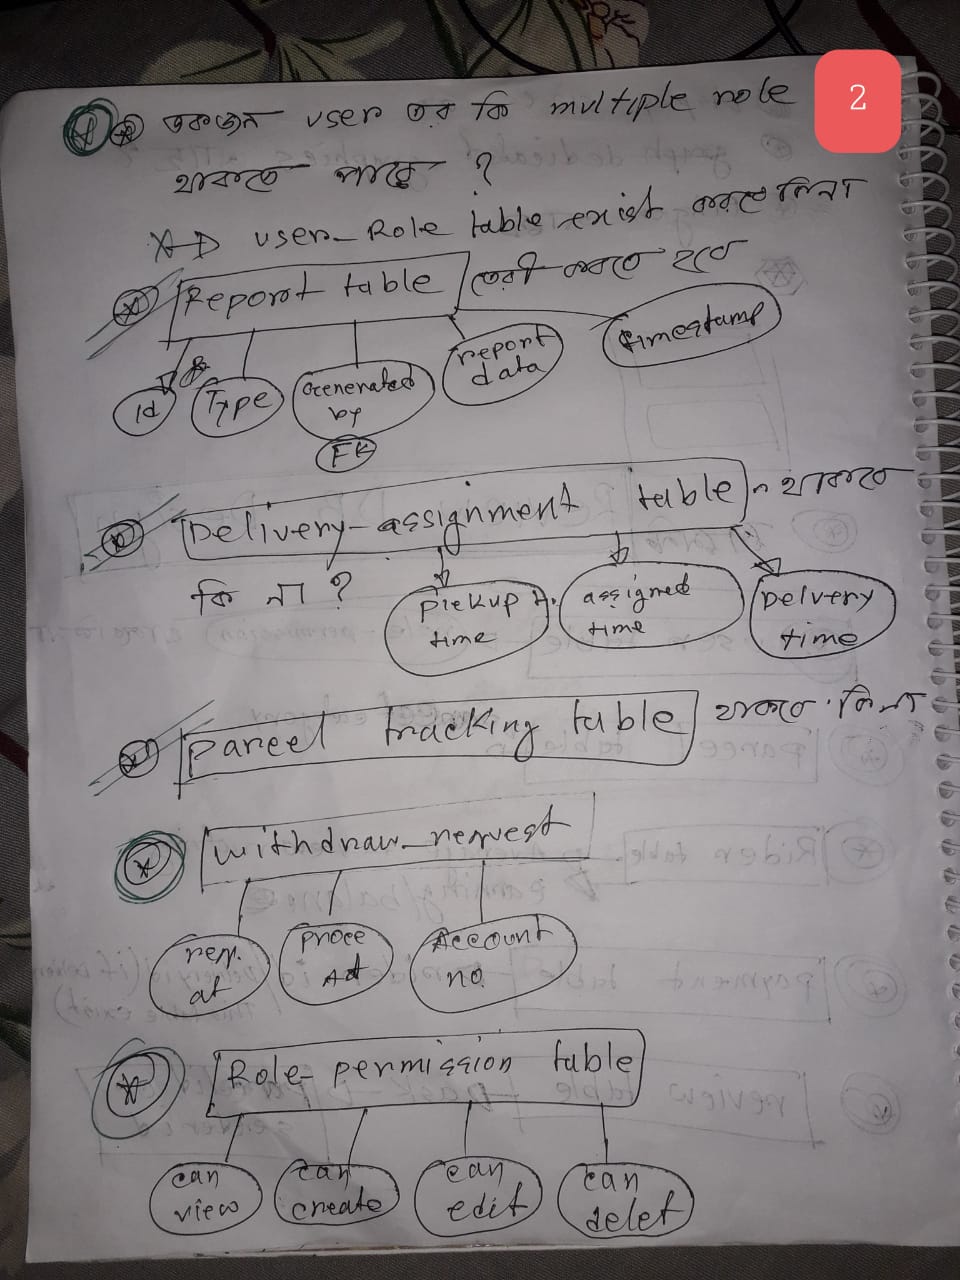 2
একজন user এর কি multiple role
থাকতে পারে ?
user_Role table exist করবে কিনা
Report table তৈরী করতে হবে
Id
Type
Generated by
FK
report data
timestamp
Delivery-assignment table থাকবে
কি না ?
pickup time
assigned time
Delvery time
parcel tracking table থাকবে কিনা
withdraw_request
req. at
proce At
Account no.
Role-permission table
can view
can create
can edit
can delet